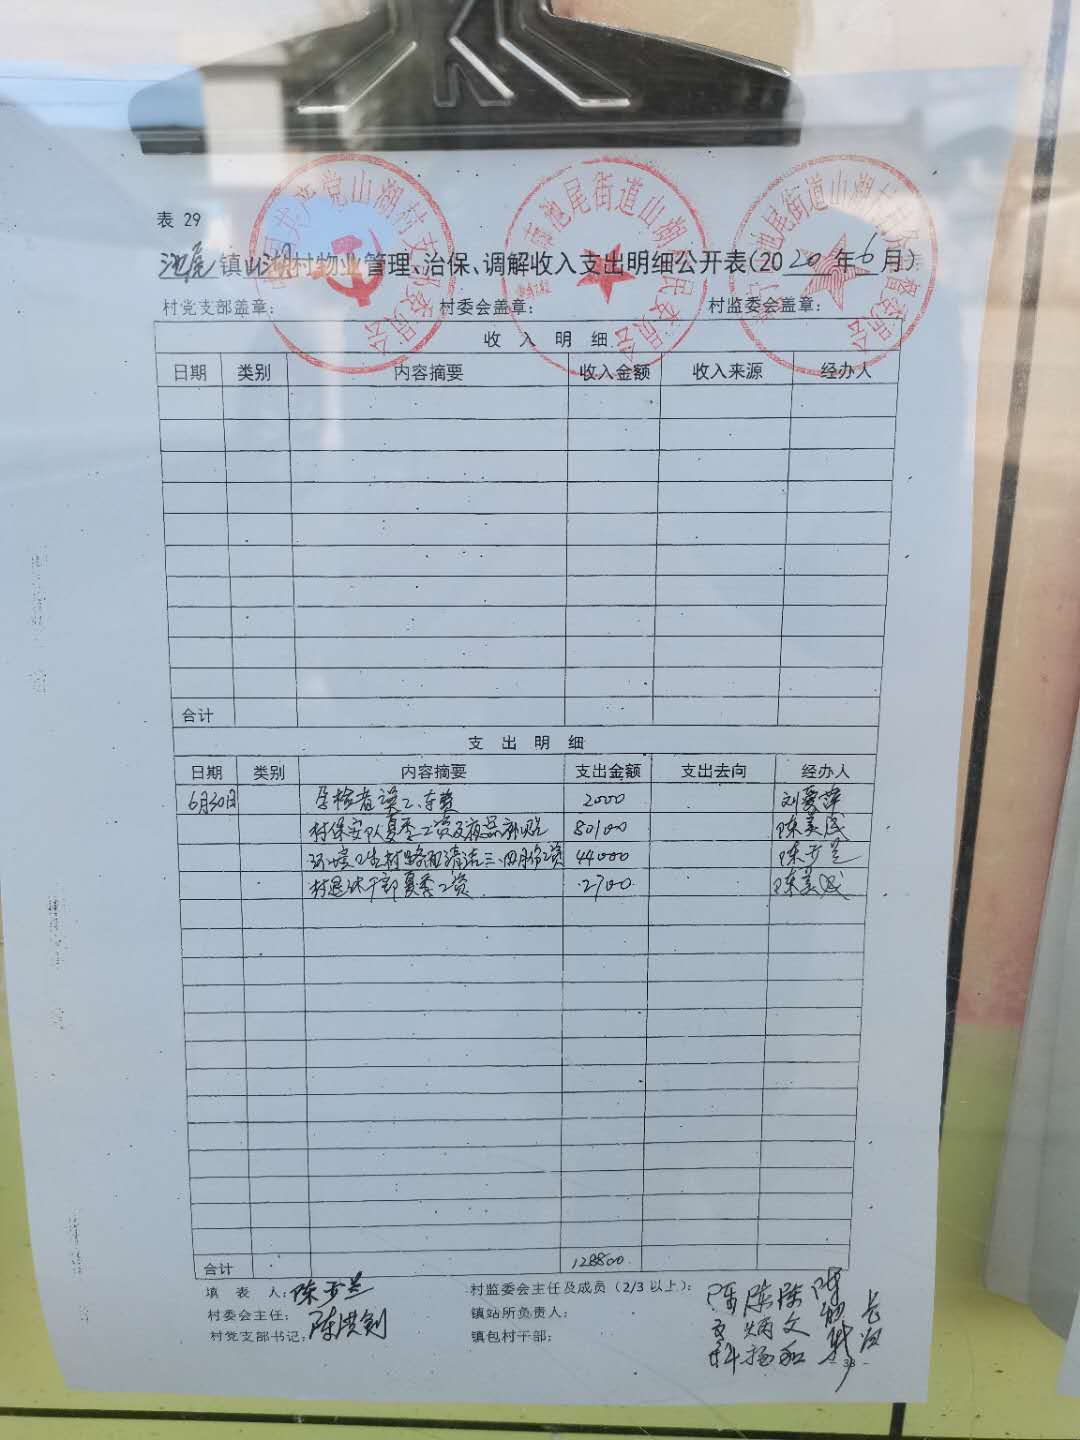 表 29
池尾镇山湖村物业管理、治保、调解收入支出明细公开表(2020年6月)
村党支部盖章: 村委会盖章: 村监委会盖章:
收入明细
日期 类别 内容摘要 收入金额 收入来源 经办人
合计
支出明细
日期 类别 内容摘要 支出金额 支出去向 经办人
6月30日 孕检者误工、车费 2000 刘爱萍
村保安队夏季工资及夜巡补贴 80100 陈美
环境卫生村路面清洁三、四月份工资 44000 陈
村退休干部夏季工资 2700 陈美
合计 128800
填表人: 陈 兰 村监委会主任及成员(2/3以上):
村委会主任: 镇站所负责人:
村党支部书记: 陈洪剑 镇包村干部:
- 38 -